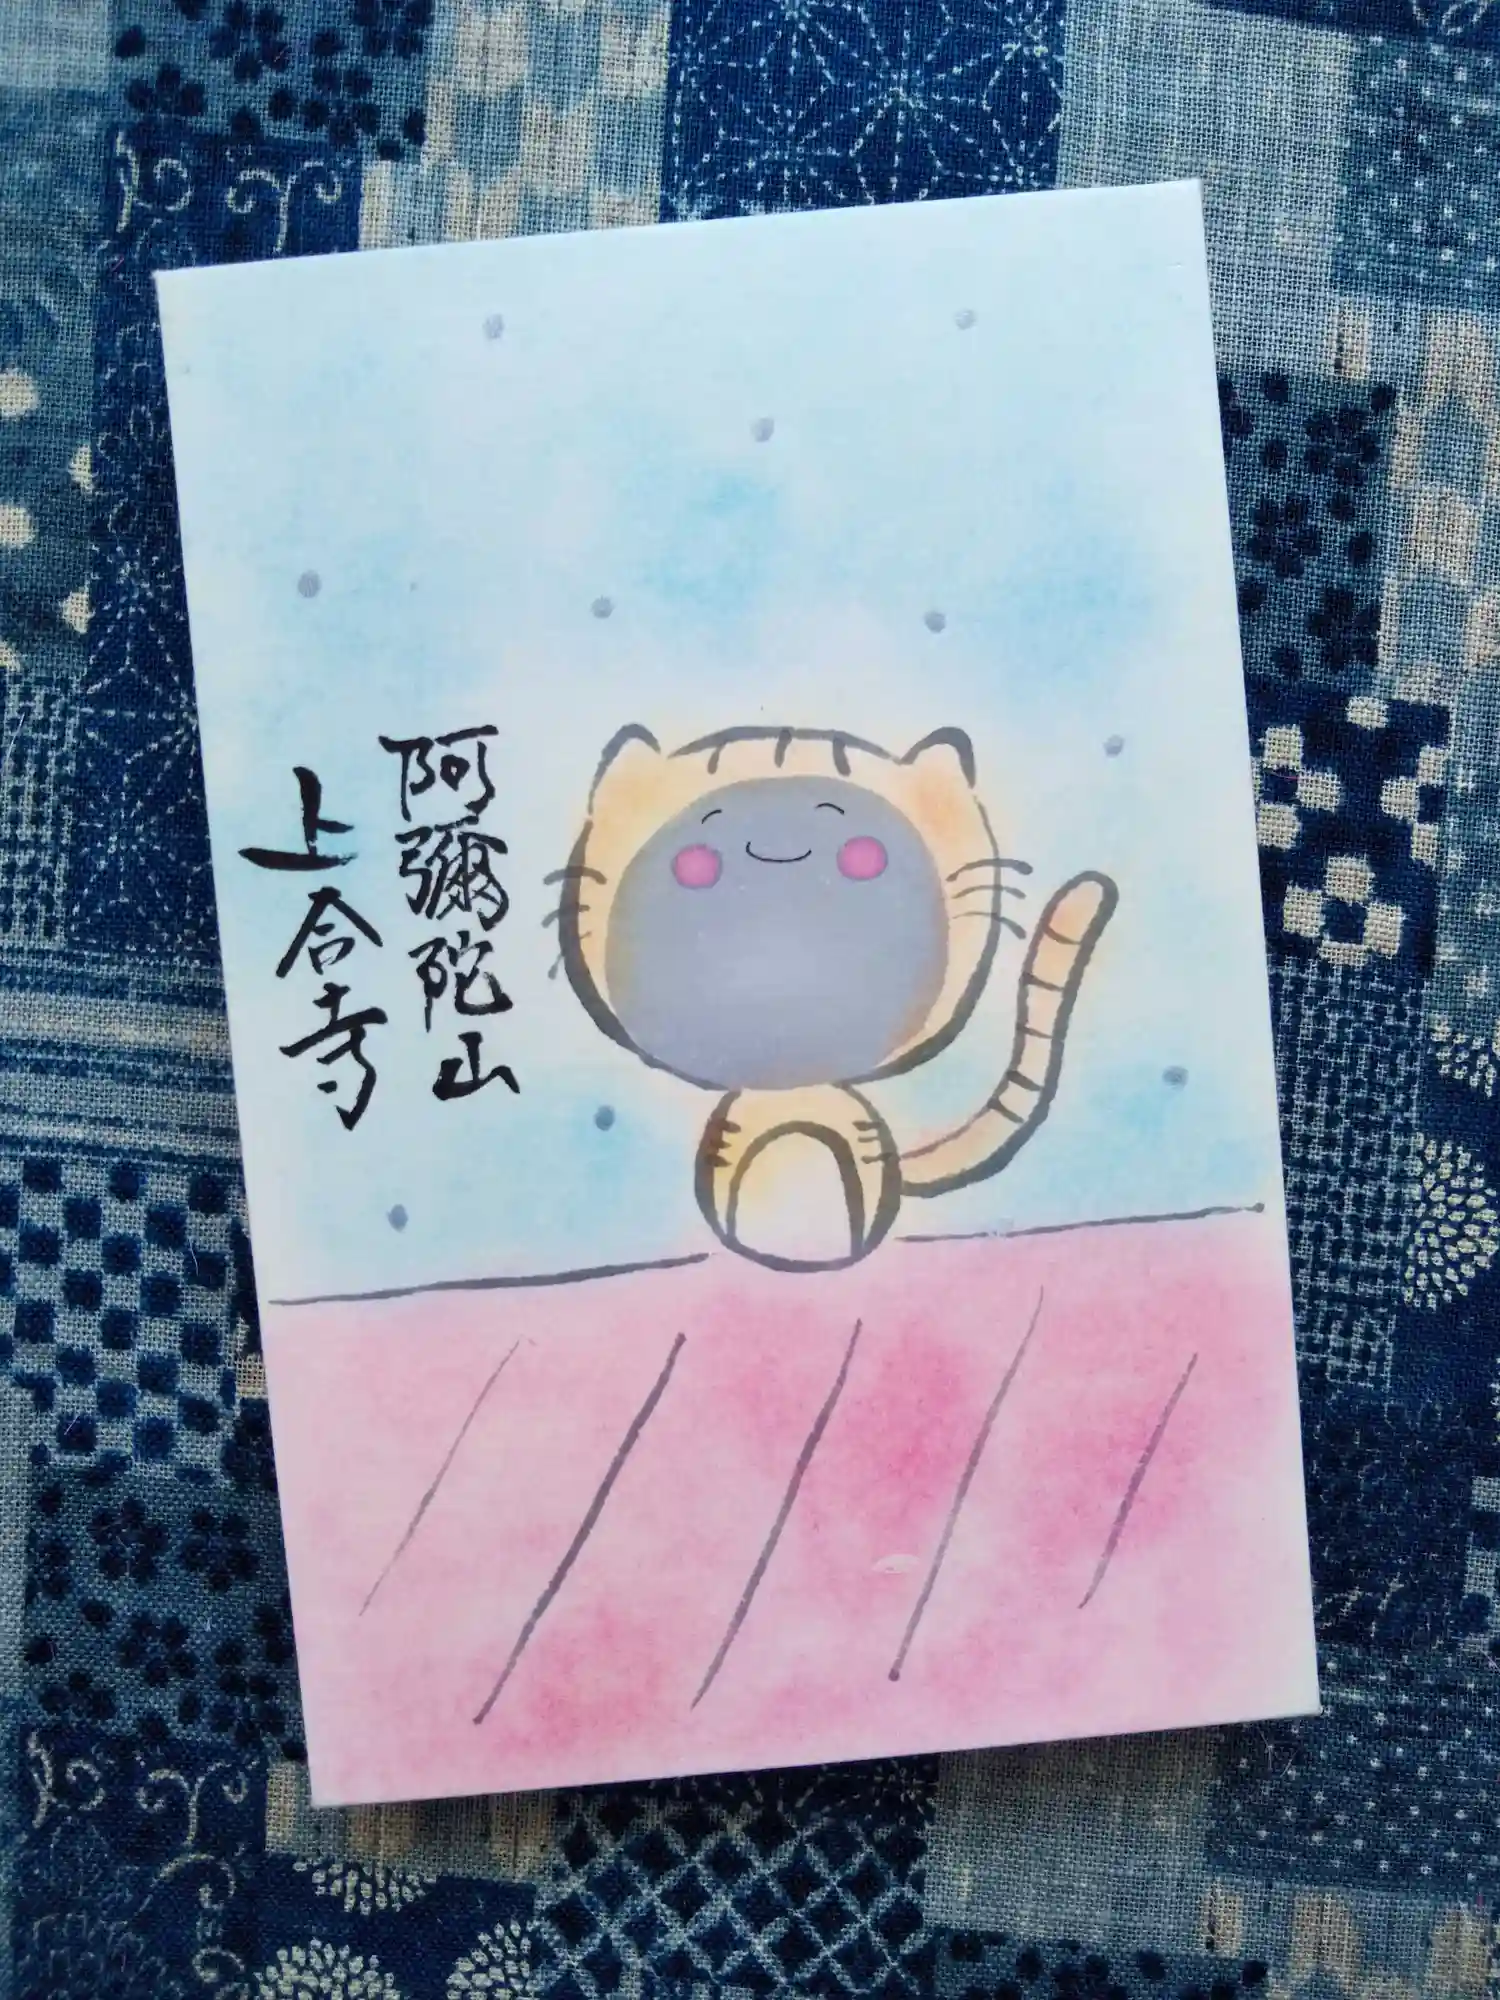 阿彌陀山
上合寺